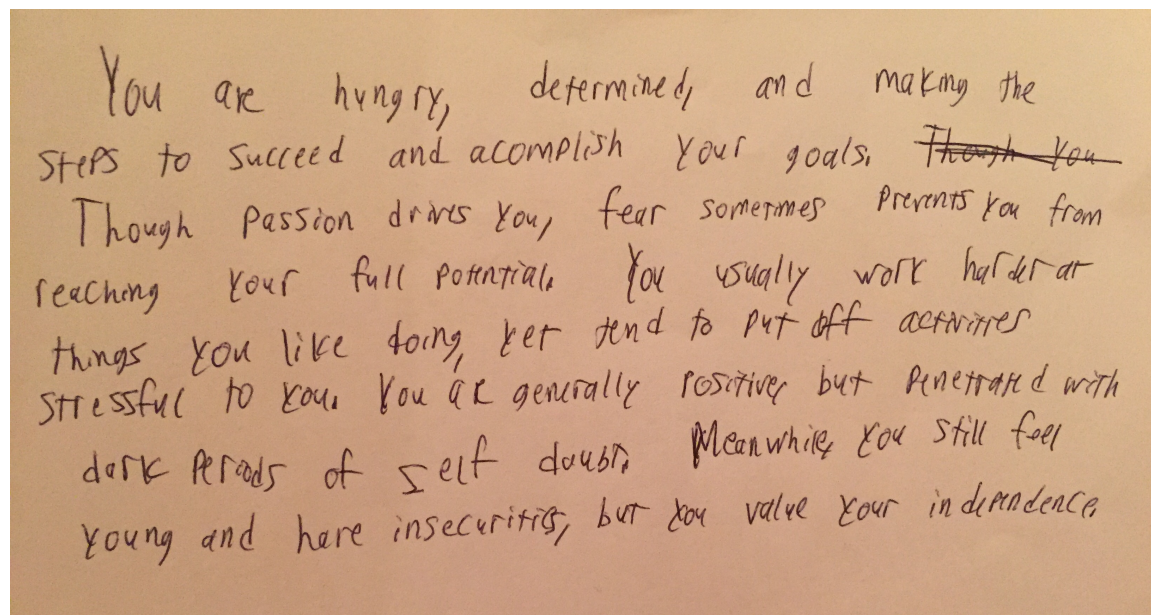 You are hungry, determined, and making the
steps to succeed and acomplish your goals. Though you
Though passion drives you, fear sometimes prevents you from
reaching your full potential. You usually work harder at
things you like doing, yet tend to put off activities
stressful to you. You are generally positive, but penetrated with
dark periods of self doubt. Meanwhile, you still feel
young and have insecurities, but you value your independence.